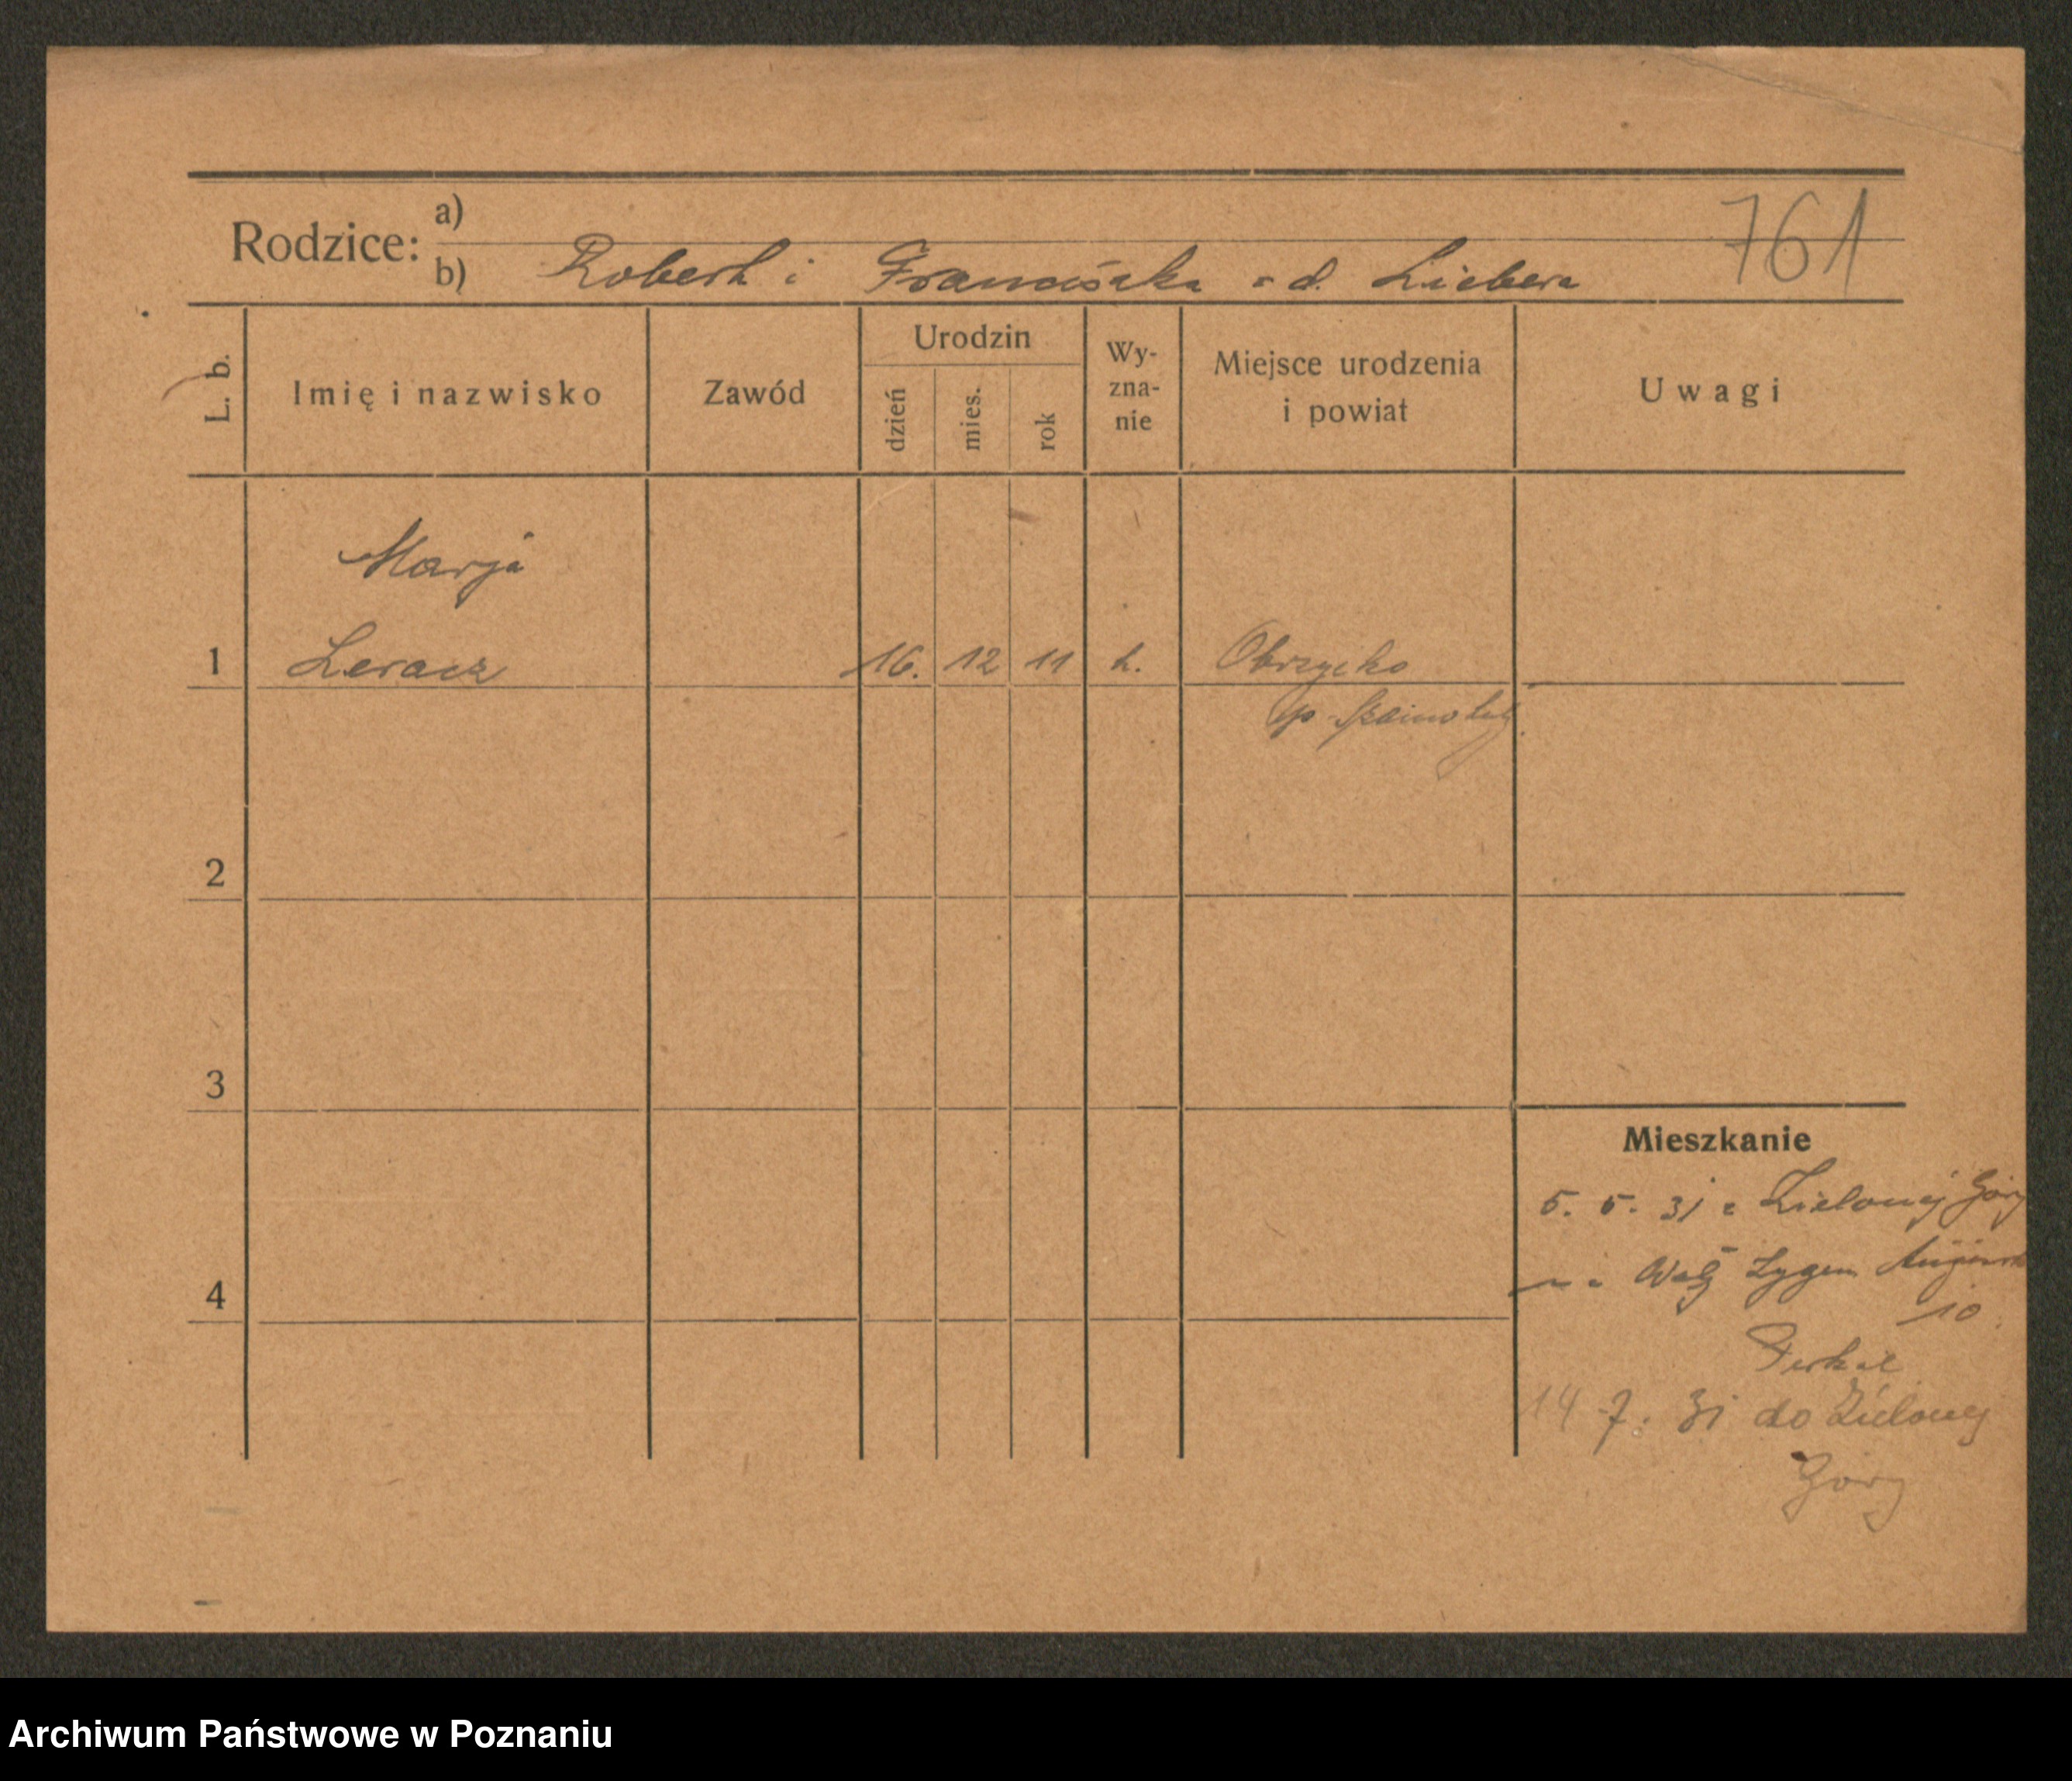 761
Rodzice: a)
b) Robert i Franciszka z d. Liebera
L. b. Imię i nazwisko Zawód Urodzin dzień mies. rok Wy-zna-nie Miejsce urodzenia i powiat Uwagi
Marja
1 Leracz 16. 12 11 k. Obrzycko
p. Szamotuły
2
3
Mieszkanie
5. 5. 31 z Zielonej Góry
4
10
14 7. 31 do Zielonej
Góry
Archiwum Państwowe w Poznaniu